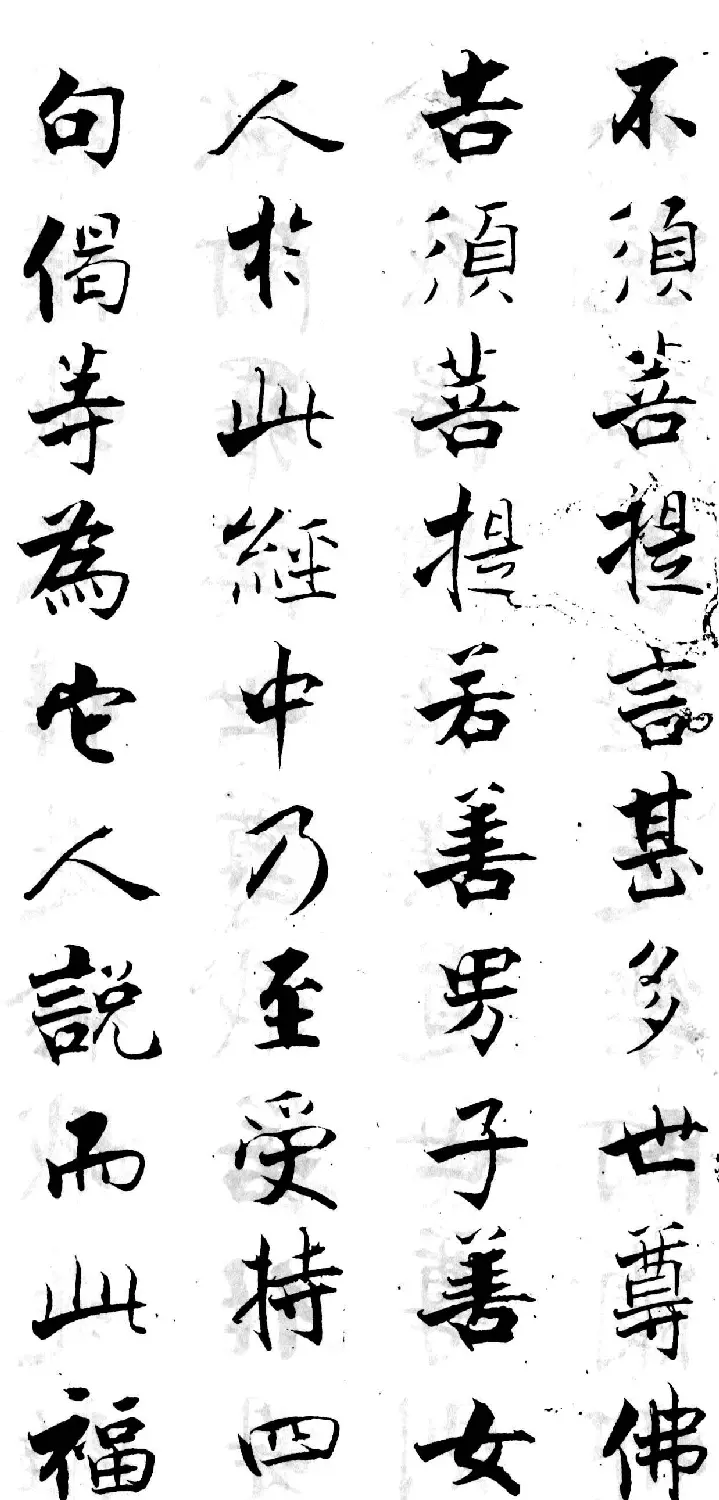 不須菩提言甚多世尊佛
告須菩提若善男子善女
人於此經中乃至受持四
句偈等為它人說而此福